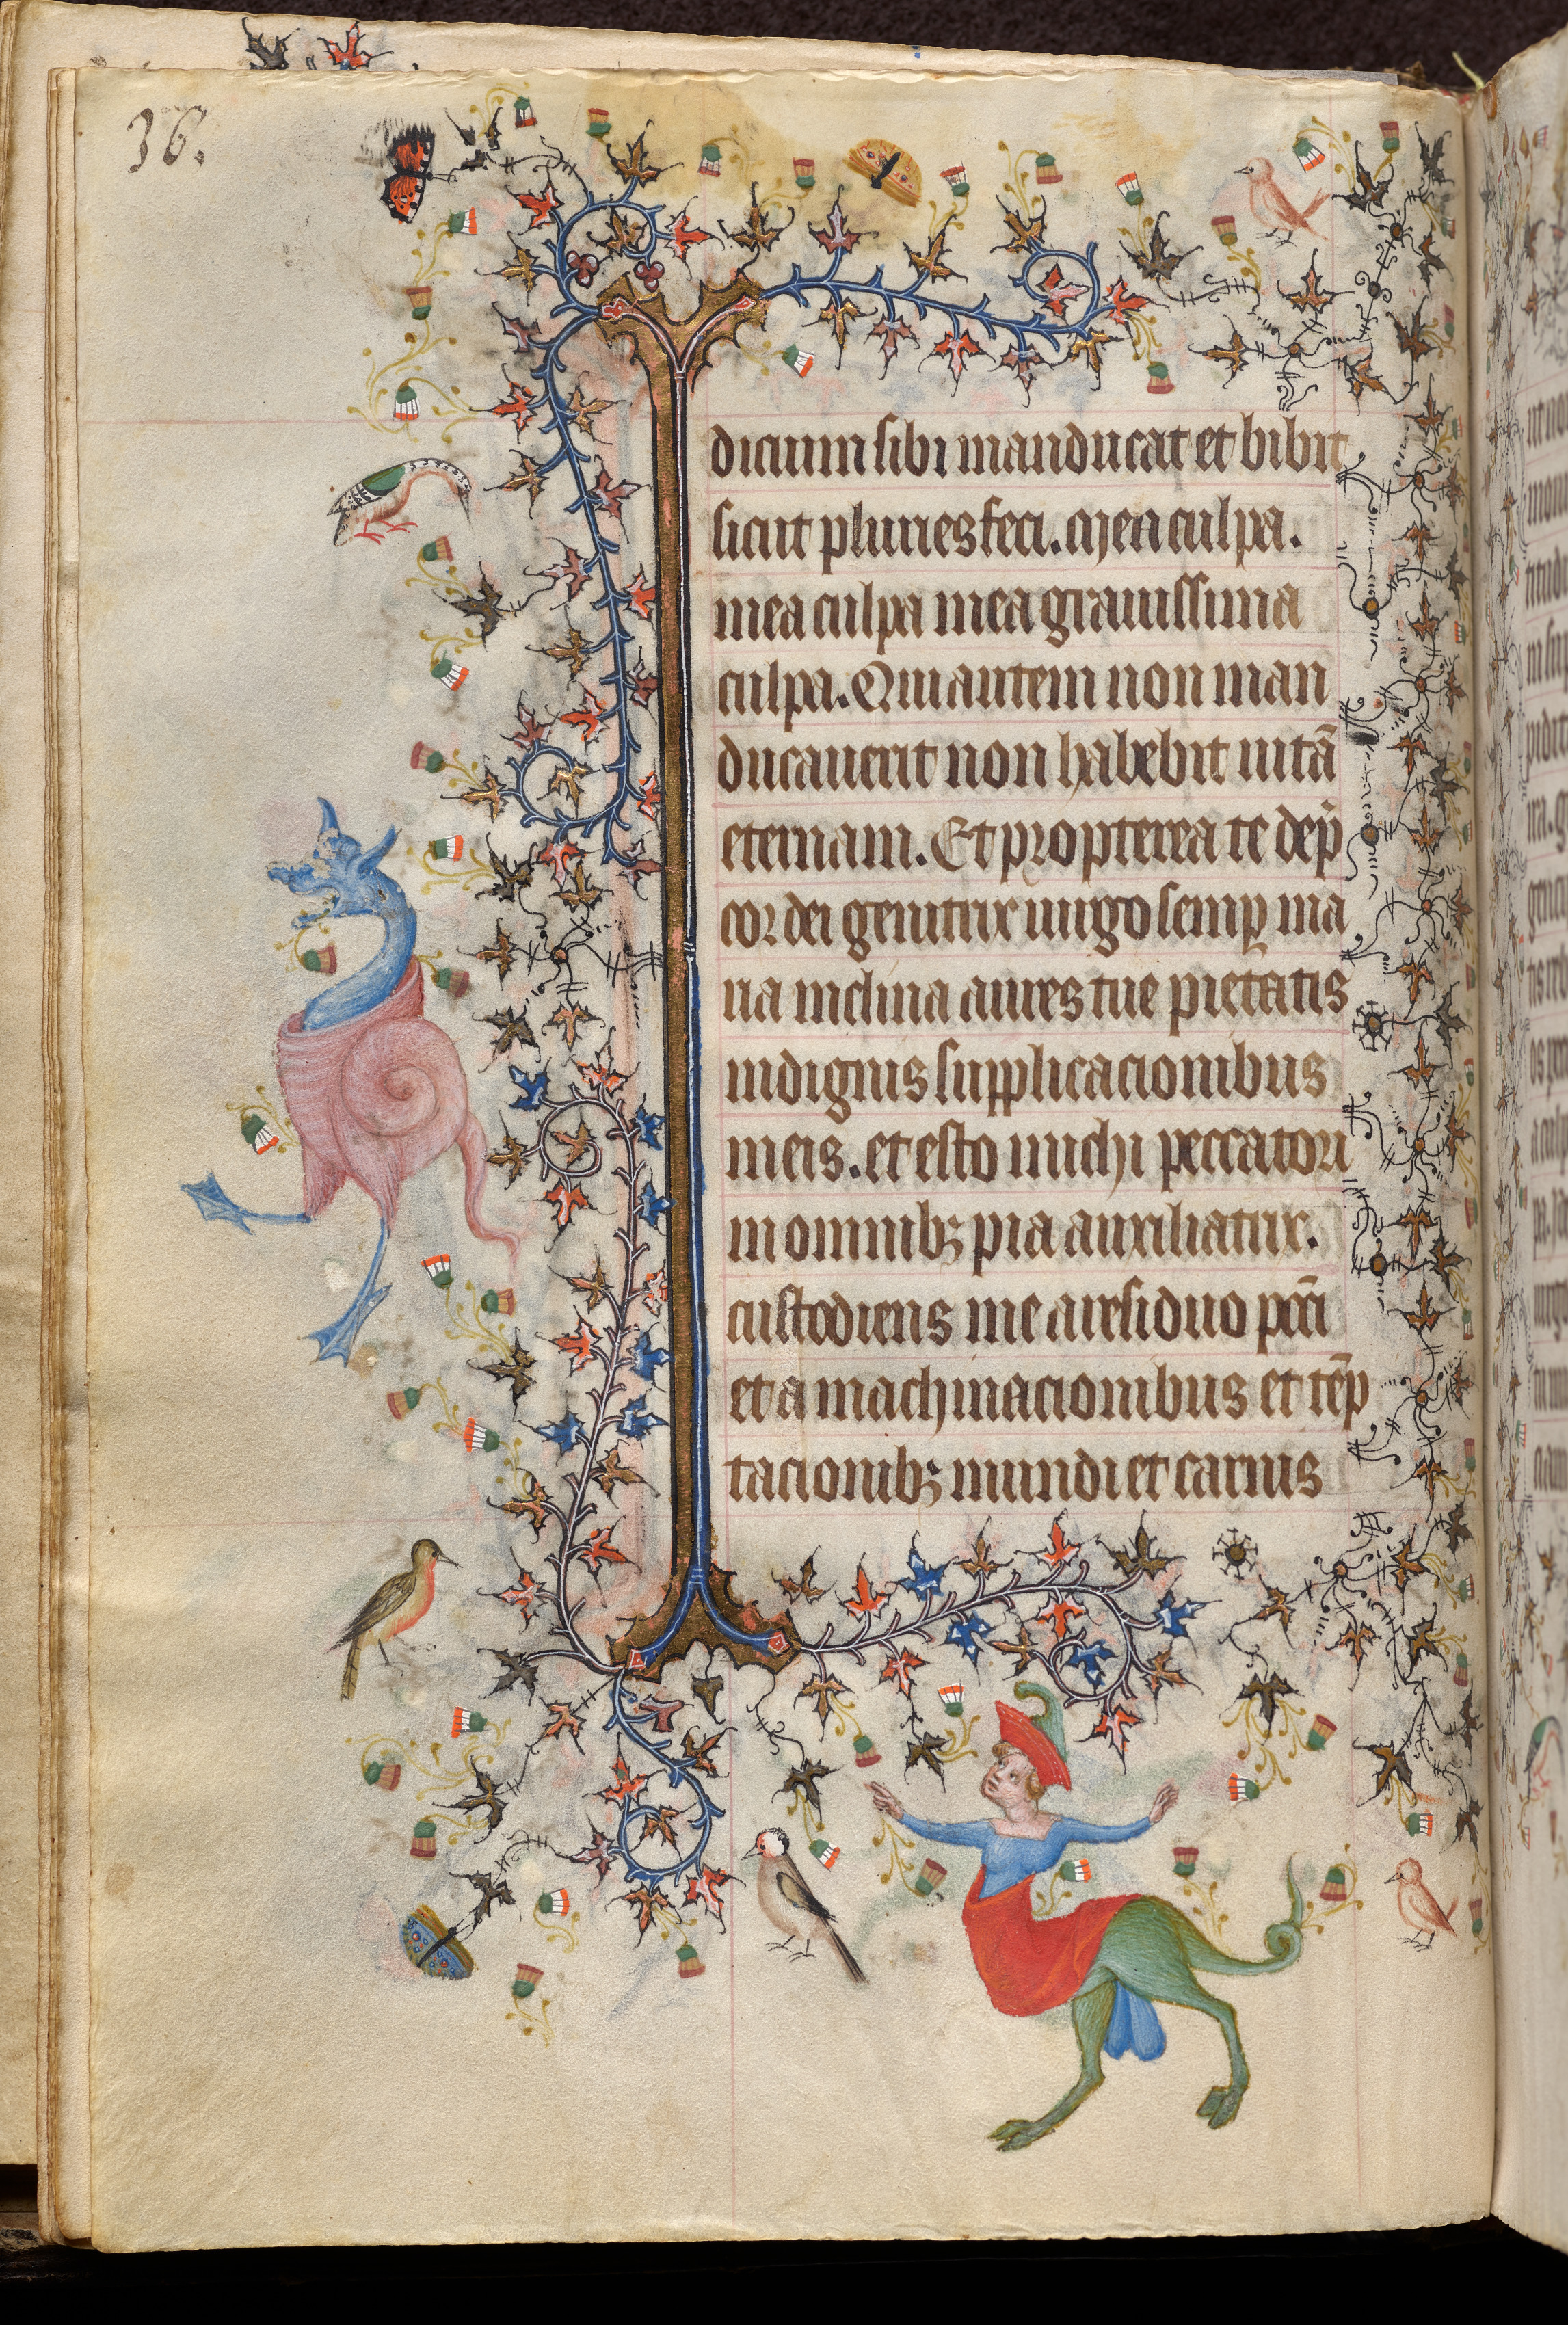 36.
dicium sibi manducat et bibit
sicut pluries feci. Mea culpa.
mea culpa mea grauissima
culpa. Qui autem non man
ducauerit non habebit uitā
eternam. Et propterea te dep̄
cor dei genitrix uirgo semꝑ ma
ria inclina aures tue pietatis
indignis supplicacionibus
meis. et esto michi peccatori
in omnibꝫ pia auxiliatrix.
custodiens me a residuo pcc̄i
et a machinacionibus et tēp
tacionibꝫ mundi et carnis